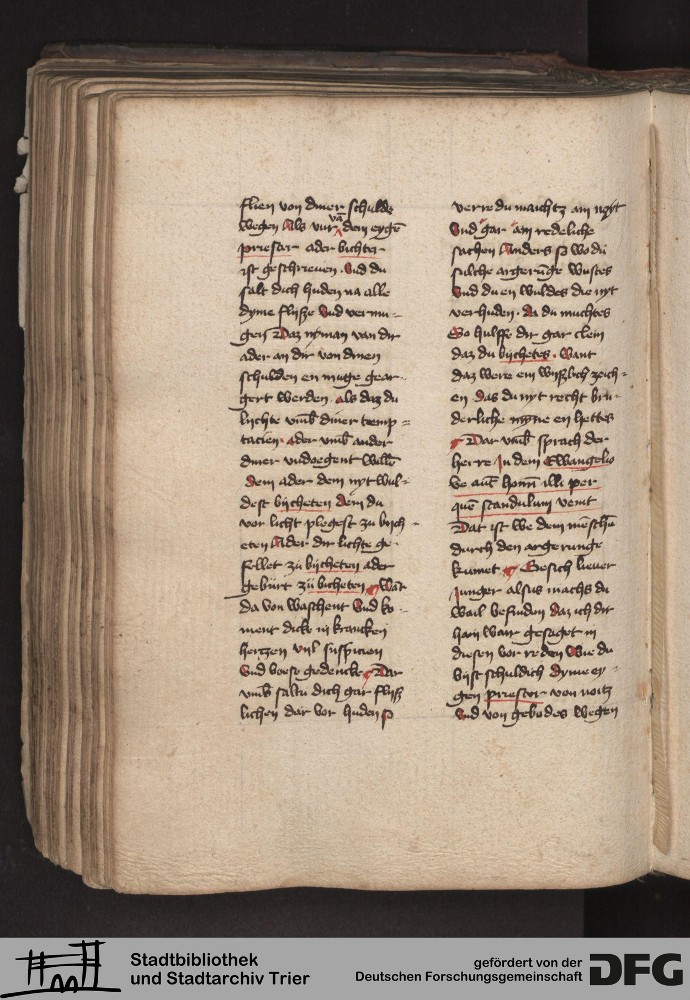 flien von diner schulde
wegen Als vur van dem eygē
priester ader bichter
ist geschrieuen. Vnd du
salt dich huden na alle
dyme flyße Vnd vermu-
gen Daz nyman van dir
ader an dir von dinen
schulden en muge gear-
gert werden. als daz du
lychte vmb diner temp-
tacien. ader vmb ander
diner vndoegent willē
dem ader dem nyt wul-
dest bijcheten dem du
vor licht plegest zu bijch-
eten Ader dir lichte ge-
fellet zu bijcheten ader
gebürt zü bicheten Wāt
da von waschent Vnd ko-
ment dicke in krancken
hertzen vyl suspicien
Vnd boese gedencke Dar
vmb saltu dich gar flyß
lichen dar vor huden so
verre du maichtz am nyt
Vnd gar am redeliche
sachen Anders so wo du
sulche argerunge wustes
Vnd du en wuldes die nyt
verhuden. da du muchtes
So hulffe dir gar clein
daz du bijchetes. Want
daz were ein wyßlich zeich-
en das du nyt recht bru-
derliche myne en hettes
Dar vmb sprach der
herre In dem Ewangelio
Ve aut homi illi per
quē scandulum venit
Dat ist we dem mēschē
durch den argerunge
kumet Gesich lieuer
Junger alsus machs du
wail befinden daz ich dir
hain wair gesaget in
diesen vor reden Wie du
byst schuldich dyme ey-
gen priester von noitz
Vnd von gebodes wegen
Stadtbibliothek
und Stadtarchiv Trier
gefördert von der
Deutschen Forschungsgemeinschaft
DFG